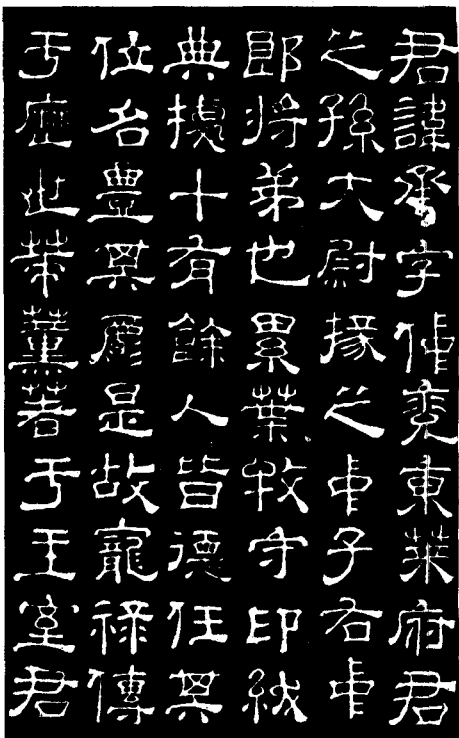 君諱承字仲兗東萊府君
之孫大尉掾之中子右中
郎將弟也累葉牧守印紱
典據十有餘人皆德任其
位名豐其爵是故寵祿傳
于歷世策薰著于王室君